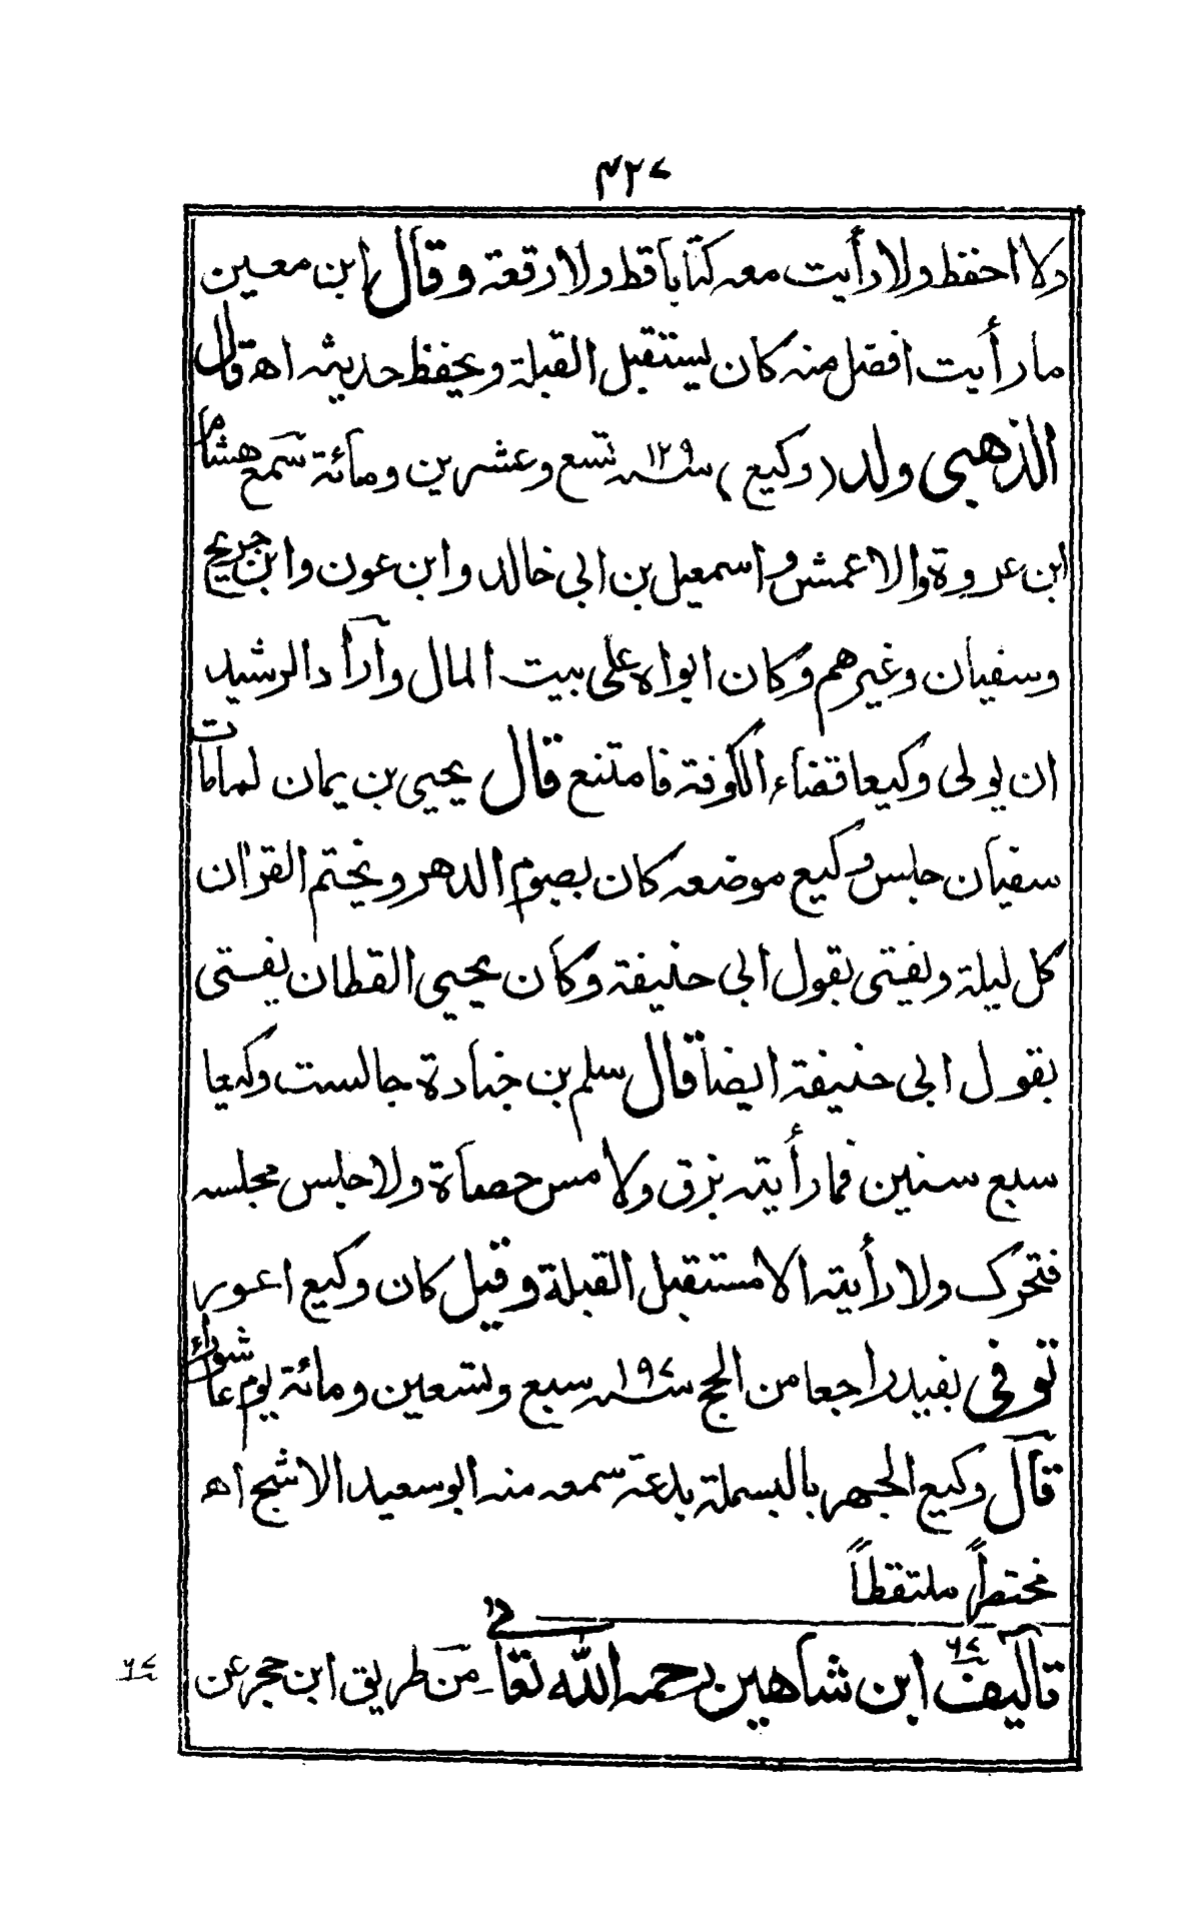 ٤٢٧
ولا احفظ ولا رأيت معه كتابا قط ولا رقعة وقال ابن معين
ما رأيت افضل منه كان يستقبل القبلة ويحفظ حديثه اه قال
الذهبي ولد (وكيع) سنة ١٢٩ تسع وعشرين ومائة سمع هشام
ابن عروة والاعمش واسمعيل بن ابي خالد وابن عون وابن جريج
وسفيان وغيرهم وكان ابواه على بيت المال وآراد الرشيد
ان يولى وكيعا قضاء الكوفة فامتنع قال يحيى بن يمان لما مات
سفيان جلس وكيع موضعه كان يصوم الدهر ويختم القران
كل ليلة ويفتى بقول ابي حنيفة وكان يحيى القطان يفتى
بقول ابي حنيفة ايضا قال سلم بن جنادة جالست وكيعا
سبع سنين فما رأيته بزق ولا مس حصاة ولا جلس مجلسه
فتحرك ولا رأيته الا مستقبل القبلة وقيل كان وكيع اعور
توفي بفيد راجعا من الحج سنة ١٩٧ سبع وتسعين ومائة يوم عاشوراء
قال وكيع الجهر بالبسملة بدعة سمعه منه ابو سعيد الاشج اه
مختصراً ملتقطاً
تآليف ٦٧ ابن شاهين رحمه الله تعالى من طريق ابن حجر عن
٦٧